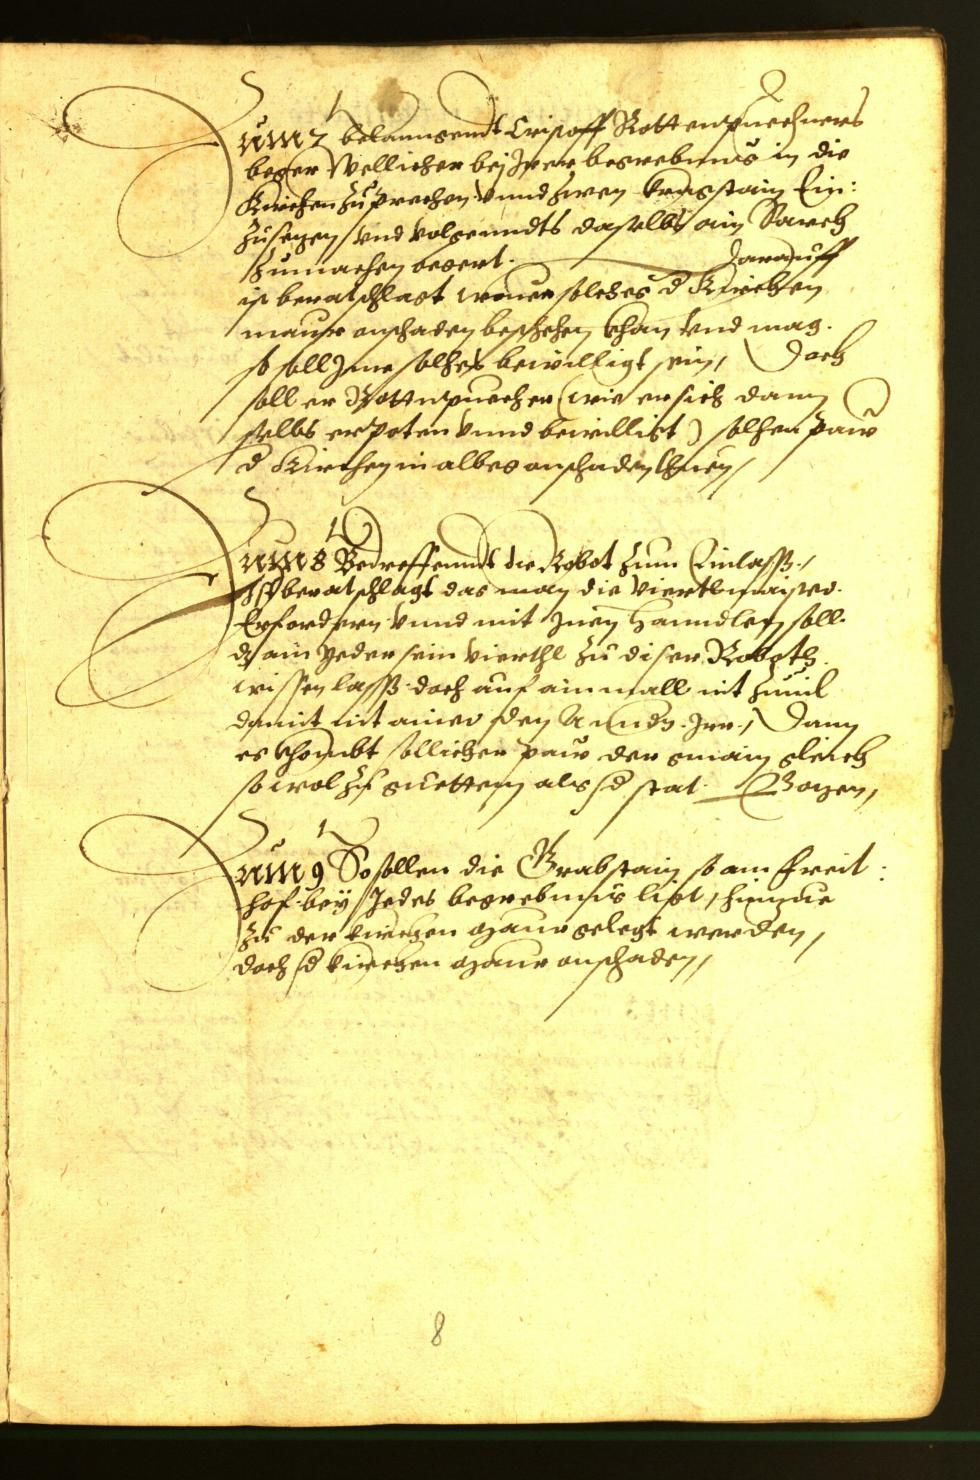 Zum 7 belanngendt Cristoff Rottenpuechners
beger Wellicher bej Irer begrebnus in die
Kirchen zuprechen vnnd zwen kragstain Ein:
zusezen, vnd volgenndts daselbs ain Sarch
zumachen begert. Darauff
ist beratschlagt wouer solches d Kirchen
maur onschaden beschehen khan vnd mag.
so soll Jme solhes bewilligt sein, Doch
soll er Rottnpuecher (wie er sich dann
selbs erpoten vnnd bewilligt) solhen paw
d Kirchen in albeg onschaden thuen,
Zum 8 Betreffennd die Robot zum Einlass.,
Ist beratschlagt das man die viertlmaister
Erfordern vnnd mit Inen hanndlen soll.
dz ain Yeder sein vierthl zu diser Roboth
wissen lass. doch auf ainmall nit zuuil
damit nit ainer den Anndn. Irr., Dann
es khombt sollicher paw der gmain gleich
so wol zu guettem als d stat. Bozen,
Zum 9 So sollen die Grabstain so am Freit:
hof bey Jedes begrebnus ligt, hinzue
zu der kirchen maur gelegt werden,
doch d kirchen maur onschaden,
8